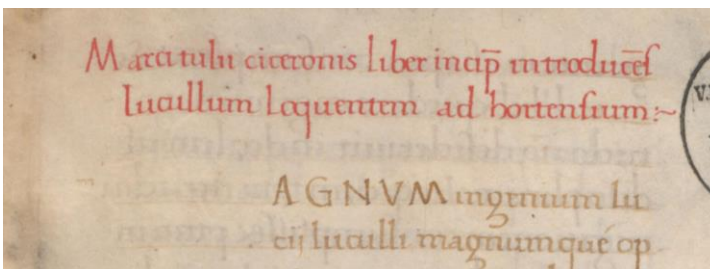 Marci tulii ciceronis liber incip̅ introduce̅s
lucullum loquentem ad hortensium:~
AGNVM ingenium lu
cii luculli magnumque op